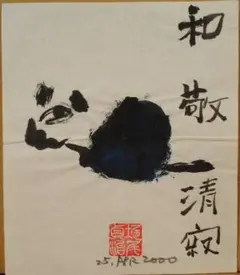 和敬清寂
25, APR 2000